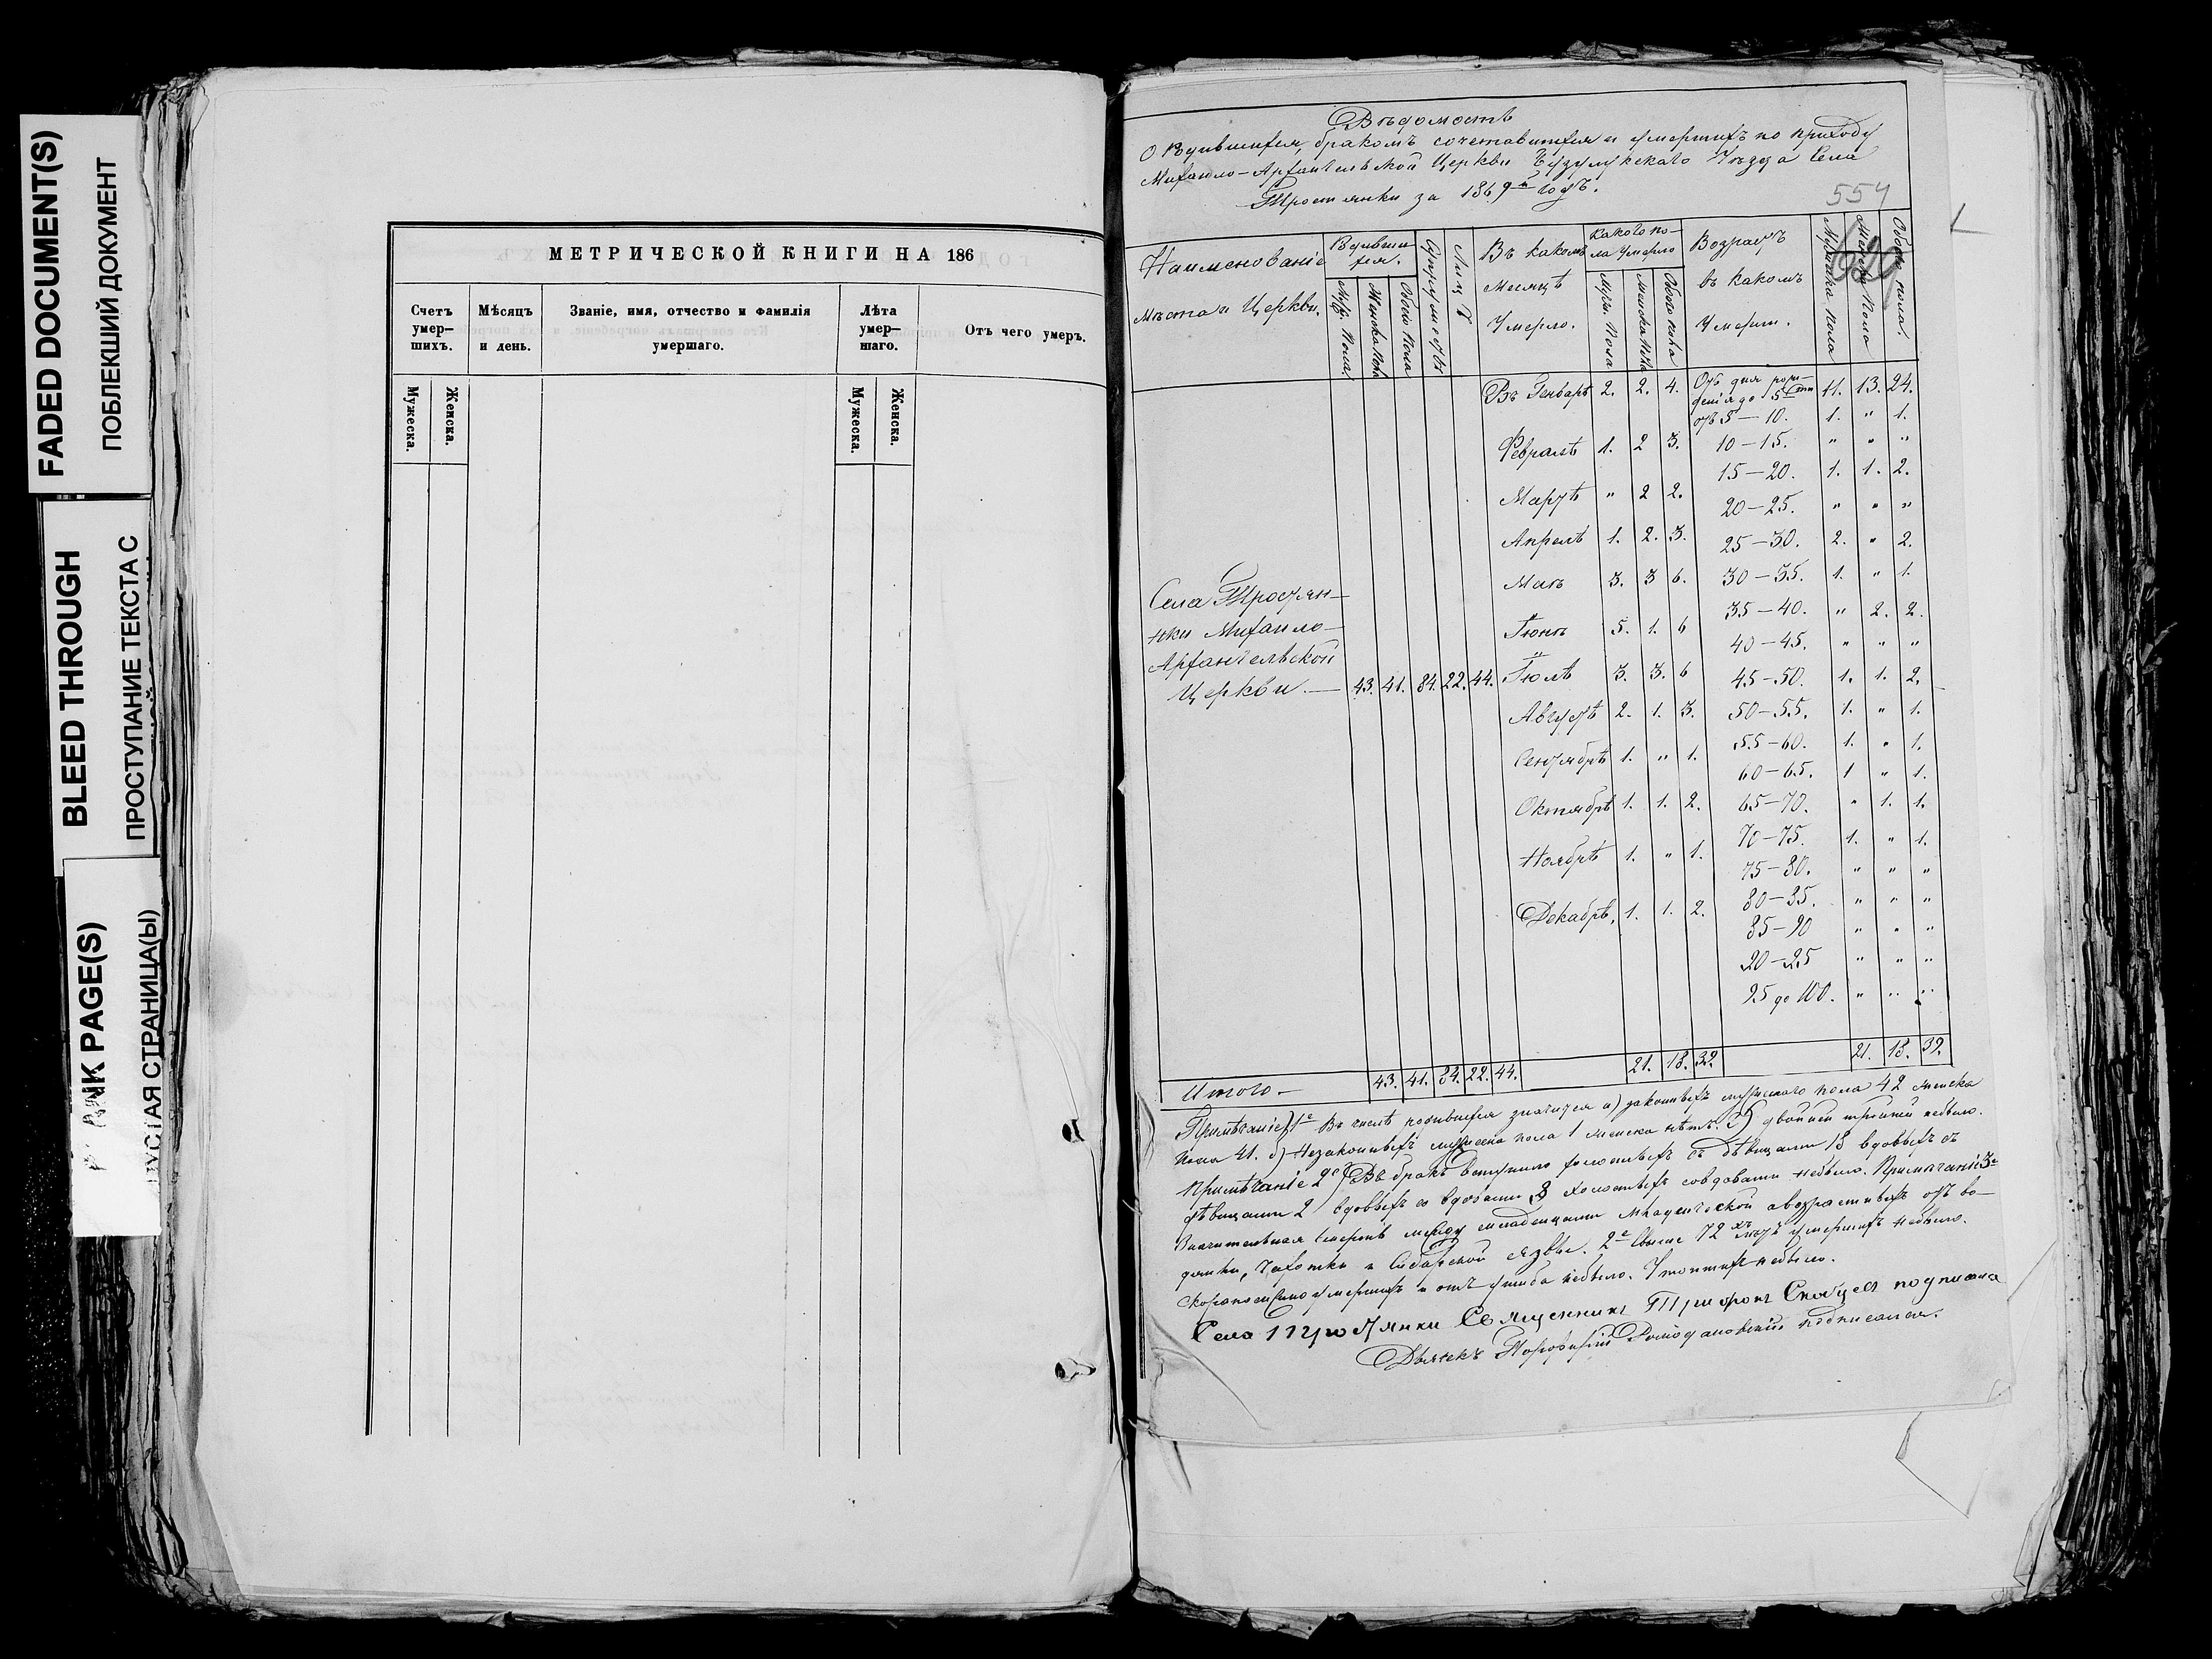 FADED DOCUMENT(S)
ПОБЛЕКШИЙ ДОКУМЕНТ
BLEED THROUGH
ПРОСТУПАНИЕ ТЕКСТА С
PAGE(S)
СТРАНИЦА(Ы)
МЕТРИЧЕСКОЙ КНИГИ НА 186
Счетъ умер— шихъ.
Мѣсяцъ и день.
Званіе, имя, отчество и фамилія умершаго.
Лѣта умер— шаго.
Отъ чего умеръ.
Мужеска.
Женска.
Мужеска.
Женска.
Вѣдомость
О Родившихся, бракомъ сочетавшихся и умершихъ по приходу
Михаило-Архангельской Церкви Бузулукскаго Уѣзда Села
Тростянки за 1869й годъ.
554
Наименованіе мѣста и Церкви.
Родивши хся.
Муж. Пола
Женска Пола
Обоего Пола
Супружествъ
Лицъ
Въ какомъ месяцѣ Умерло.
Какого по— ла Умерло
Муж. Пола
Женска Пола
Обоего пола
Возрастъ въ какомъ Умерли.
Мужска пола
Женска Пола
Обоего пола.
Въ Генварѣ 2. 2. 4. Отъ дня рож— денія до 5ти 11. 13. 24.
отъ 5 — 10. 1. " 1.
Февралѣ 1. 2 3. 10 — 15. " " "
15 — 20. 1. 1. 2.
Мартѣ " 2 2. 20 — 25. " " "
Апрелѣ 1. 2. 3. 25 — 30. 2. " 2.
Маѣ 3. 3 6. 30 — 35. 1. " 1.
Села Тростян—
35 — 40. " 2. 2.
нки Михаило—
Іюнѣ 5. 1. 6 40 — 45. " " "
Архангельской
Церкви. — 43. 41. 84. 22. 44. Іюлѣ 3. 3. 6 45 — 50. 1. 1. 2.
Августѣ 2. 1. 3. 50 — 55. 1. " 1.
55 — 60. 1. " 1.
Сентябрѣ 1. " 1. 60 — 65. 1 " 1.
Октябрѣ 1. 1. 2. 65 — 70. " 1. 1.
70 — 75. 1. " 1.
Ноябрѣ 1. " 1. 75 — 80. " " "
Декабрѣ, 1. 1. 2. 80 — 85. " " "
85 — 90 " " "
90 — 95 " " "
95 до 100. " " "
Итого — 43. 41. 84. 22. 44. 21. 18. 39. 21. 18. 39.
Примѣчаніе 1е Въ числѣ родившихся значится а) законныхъ мужескаго пола 42 женска
пола 41. б) Незаконныхъ мужеска пола 1 женска нѣтъ. двойней тройней небыло.
Примѣчаніе 2е Въ бракъ вступило холостыхъ съ дѣвицами 18 вдовыхъ съ
дѣвицами 2 вдовыхъ со вдовами холостыхъ со вдовами небыло. Примѣчаніе 3е
Значительная смерть между младенцами а возрастныхъ отъ во—
дянки, Чахотки и Сибирской язвы. 2е Свыше 72хъ лѣтъ умершихъ небыло.
Скоропостижно умершихъ и отъ ушиба небыло.
Села Тростянки Священникъ Трифонъ
Дьячекъ подписался.